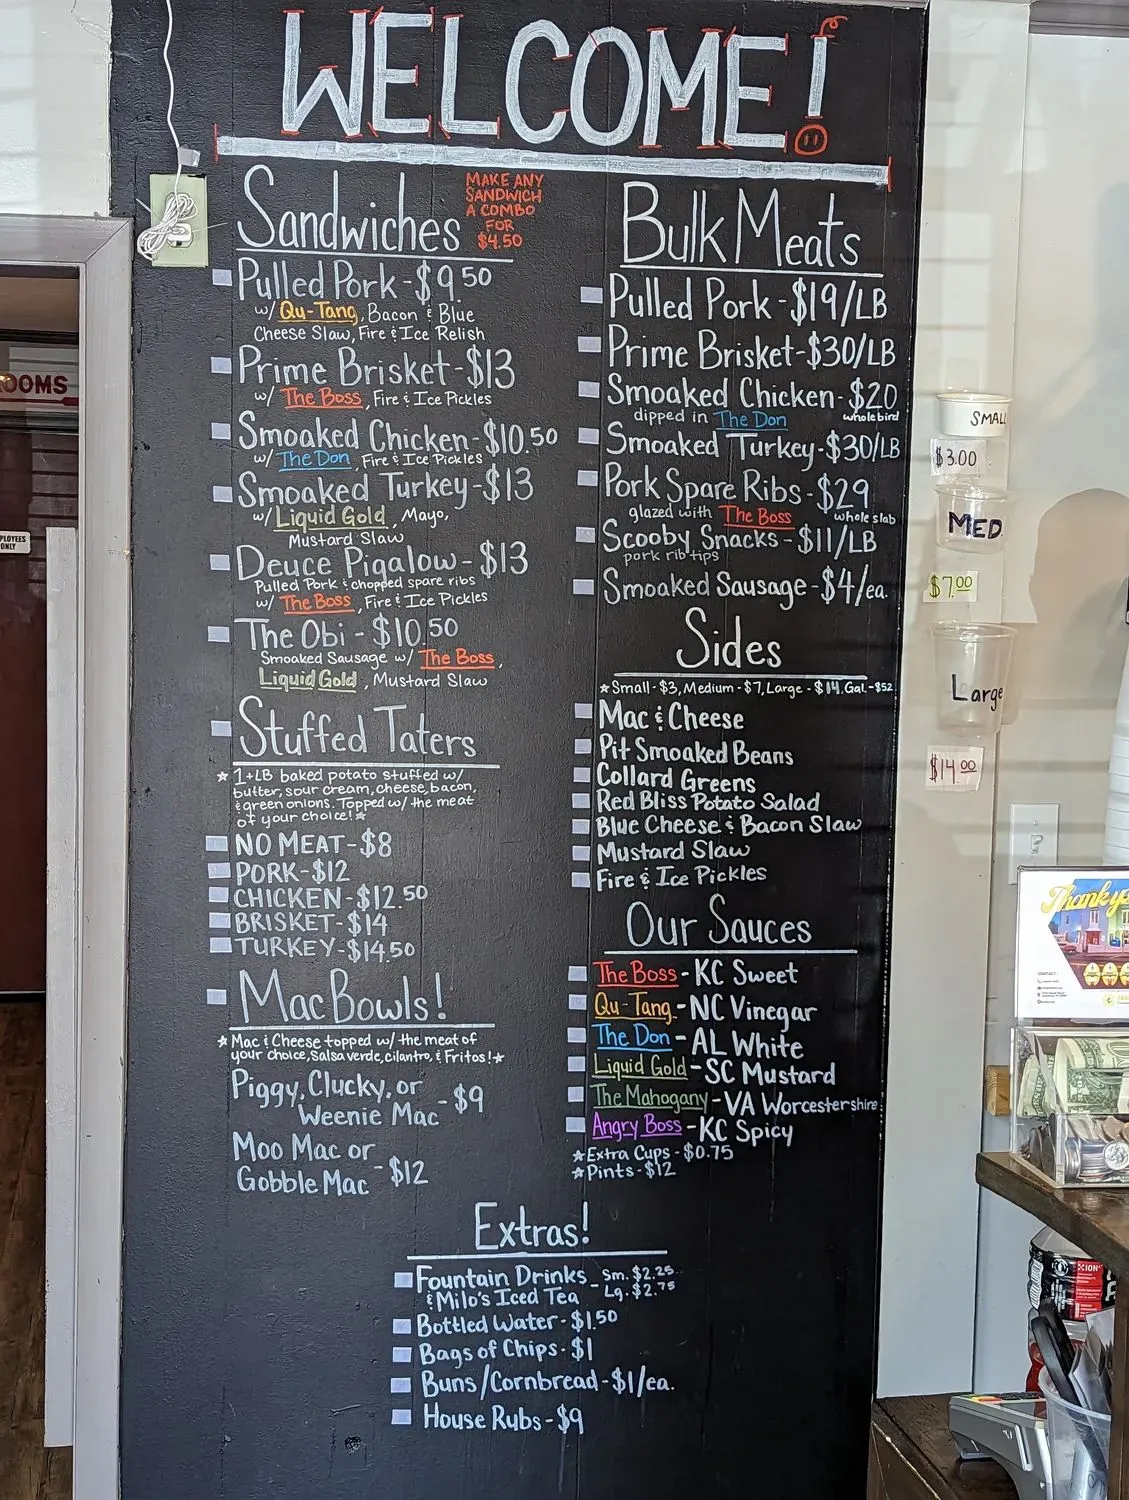 WELCOME!
Sandwiches
MAKE ANY
SANDWICH
A COMBO
FOR
$4.50
Pulled Pork - $9.50
w/ Qu-Tang, Bacon & Blue
Cheese Slaw, Fire & Ice Relish
Prime Brisket - $13
w/ The Boss, Fire & Ice Pickles
Smoaked Chicken - $10.50
w/ The Don, Fire & Ice Pickles
Smoaked Turkey - $13
w/ Liquid Gold, Mayo,
Mustard Slaw
Deuce Pigalow - $13
Pulled Pork & chopped spare ribs
w/ The Boss, Fire & Ice Pickles
The Obi - $10.50
Smoaked Sausage w/ The Boss,
Liquid Gold, Mustard Slaw
Stuffed Taters
★ 1+LB baked potato stuffed w/
butter, sour cream, cheese, bacon,
& green onions. Topped w/ the meat
of your choice! ★
NO MEAT - $8
PORK - $12
CHICKEN - $12.50
BRISKET - $14
TURKEY - $14.50
Mac Bowls!
★ Mac & Cheese topped w/ the meat of
your choice, Salsa verde, cilantro, & Fritos! ★
Piggy, Clucky, or
Weenie Mac - $9
Moo Mac or
Gobble Mac - $12
Bulk Meats
Pulled Pork - $19/LB
Prime Brisket - $30/LB
Smoaked Chicken - $20
dipped in The Don whole bird
Smoaked Turkey - $30/LB
Pork Spare Ribs - $29
glazed with The Boss whole slab
Scooby Snacks - $11/LB
pork rib tips
Smoaked Sausage - $4/ea.
Sides
★ Small - $3, Medium - $7, Large - $14, Gal. - $52
Mac & Cheese
Pit Smoaked Beans
Collard Greens
Red Bliss Potato Salad
Blue Cheese & Bacon Slaw
Mustard Slaw
Fire & Ice Pickles
Our Sauces
The Boss - KC Sweet
Qu-Tang - NC Vinegar
The Don - AL White
Liquid Gold - SC Mustard
The Mahogany - VA Worcestershire
Angry Boss - KC Spicy
★ Extra Cups - $0.75
★ Pints - $12
Extras!
Fountain Drinks - Sm. $2.25
& Milo's Iced Tea Lg. $2.75
Bottled Water - $1.50
Bags of Chips - $1
Buns/Cornbread - $1/ea.
House Rubs - $9
SMALL
$3.00
MED.
$7.00
Large
$14.00
OOMS
PLOYEES
ONLY
Thank y